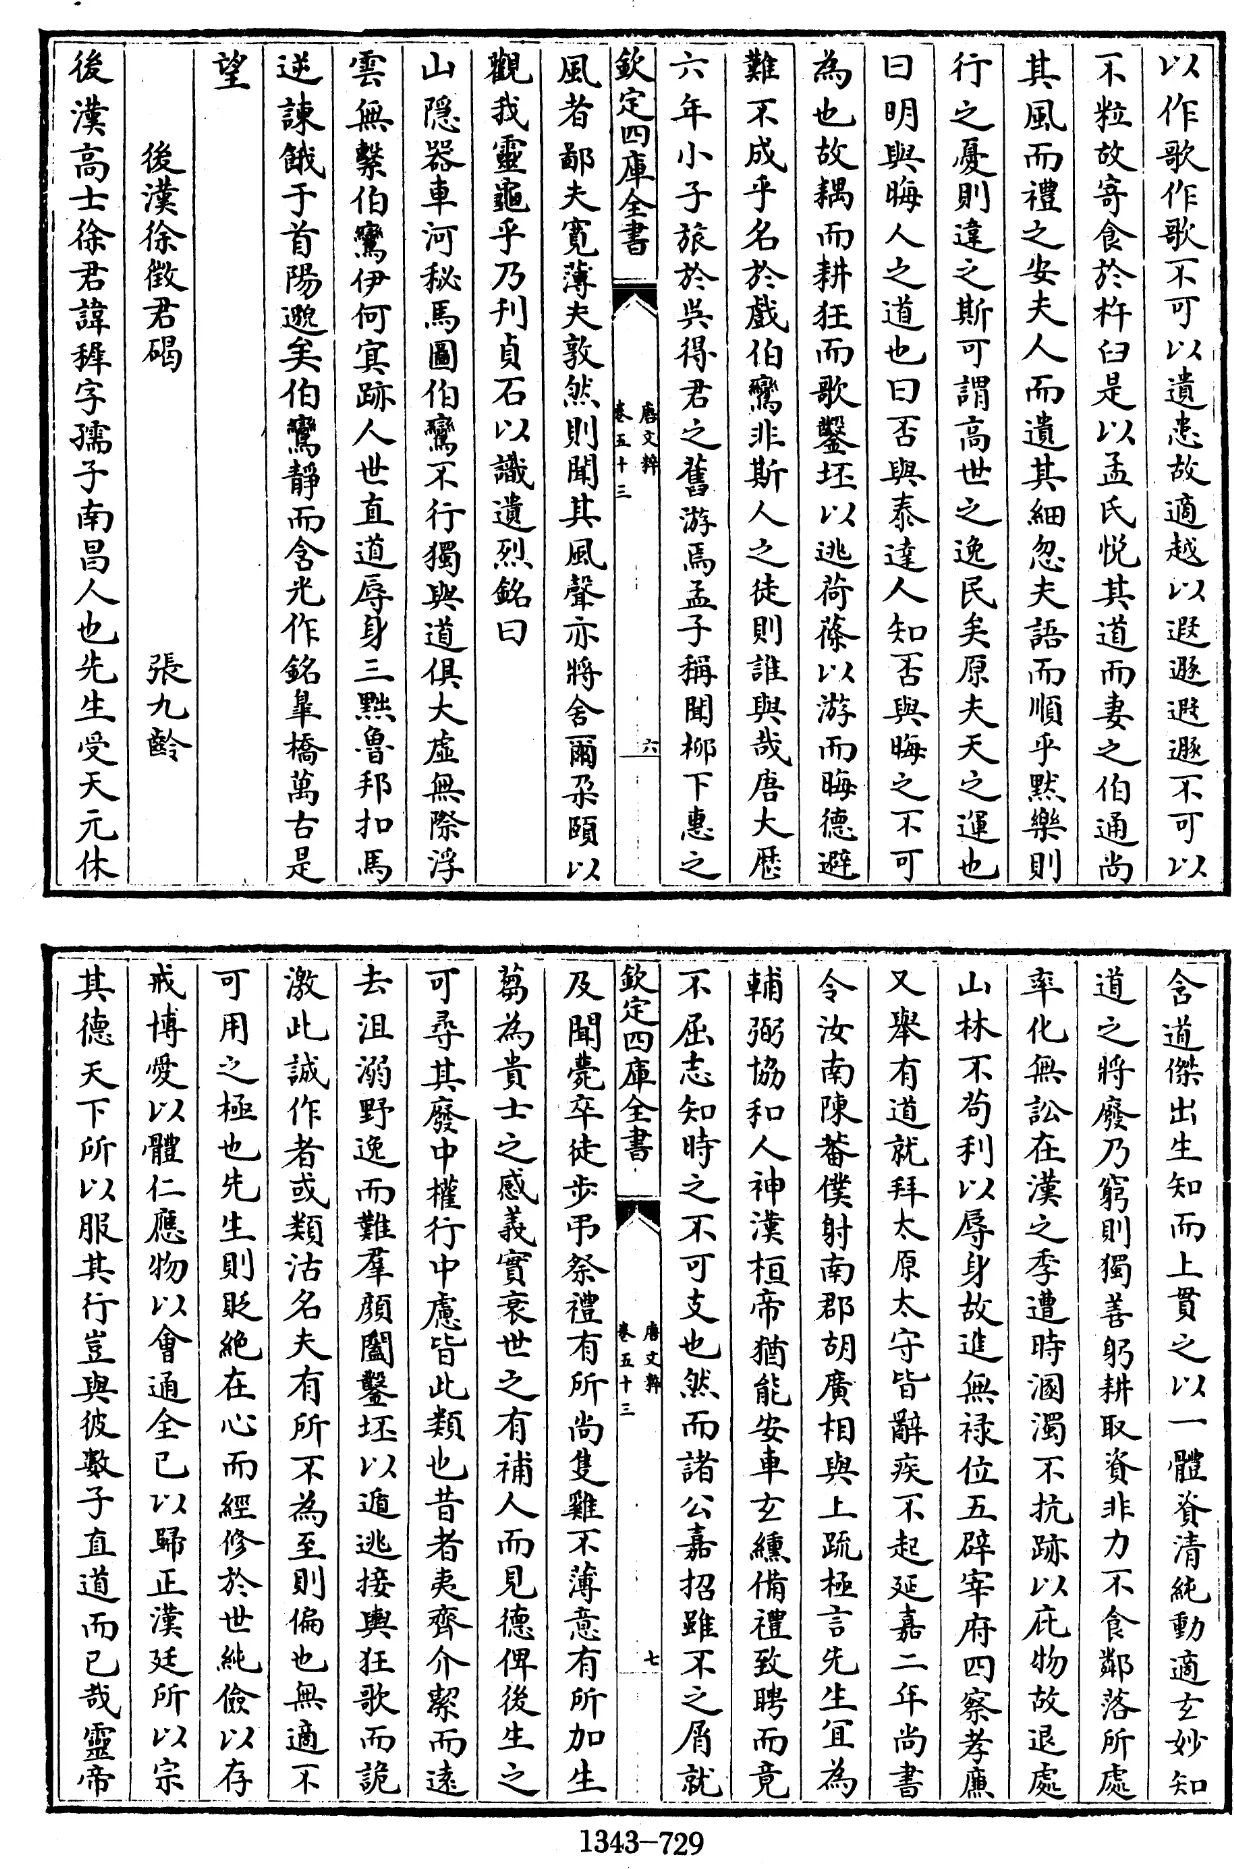 以作歌作歌不可以遺患故適越以遐遯遐遯不可以
不粒故寄食於杵臼是以孟氏悦其道而妻之伯通尚
其風而禮之安夫人而遺其細忽夫語而順乎默樂則
行之憂則違之斯可謂高世之逸民矣原夫天之運也
曰明與晦人之道也曰否與泰達人知否與晦之不可
為也故耦而耕狂而歌鑿坯以逃荷蓧以游而晦德避
難不成乎名於戲伯鸞非斯人之徒則誰與哉唐大歷
六年小子旅於吳得君之舊游焉孟子稱聞柳下惠之
欽定四庫全書
唐文粹
卷五十三
六
風者鄙夫寬薄夫敦然則聞其風聲亦將舍爾朶頤以
觀我靈龜乎乃刊貞石以識遺烈銘曰
山隱器車河秘馬圖伯鸞不行獨與道俱大虛無際浮
雲無繫伯鸞伊何寘跡人世直道辱身三黜魯邦扣馬
逆諫餓于首陽邈矣伯鸞靜而含光作銘臯橋萬古是
望
後漢徐徵君碣
張九齡
後漢高士徐君諱穉字孺子南昌人也先生受天元休
含道傑出生知而上貫之以一體資清純動適玄妙知
道之將廢乃窮則獨善躬耕取資非力不食鄰落所處
率化無訟在漢之季遭時溷濁不抗跡以庇物故退處
山林不苟利以辱身故進無祿位五辟宰府四察孝廉
又舉有道就拜太原太守皆辭疾不起延嘉二年尚書
令汝南陳蕃僕射南郡胡廣相與上疏極言先生宜為
輔弼協和人神漢桓帝猶能安車玄纁備禮致聘而竟
不屈志知時之不可支也然而諸公嘉招雖不之屑就
欽定四庫全書
唐文粹
卷五十三
七
及聞薨卒徒步弔祭禮有所尚隻雞不薄意有所加生
芻為貴士之感義實衰世之有補人而見德俾後生之
可尋其廢中權行中慮皆此類也昔者夷齊介絜而遠
去沮溺野逸而難羣顏闔鑿坯以遁逃接輿狂歌而詭
激此誠作者或類沽名夫有所不為至則偏也無適不
可用之極也先生則貶絶在心而經修於世純儉以存
戒博愛以體仁應物以會通全己以歸正漢廷所以宗
其德天下所以服其行豈與彼數子直道而已哉靈帝
1343-729